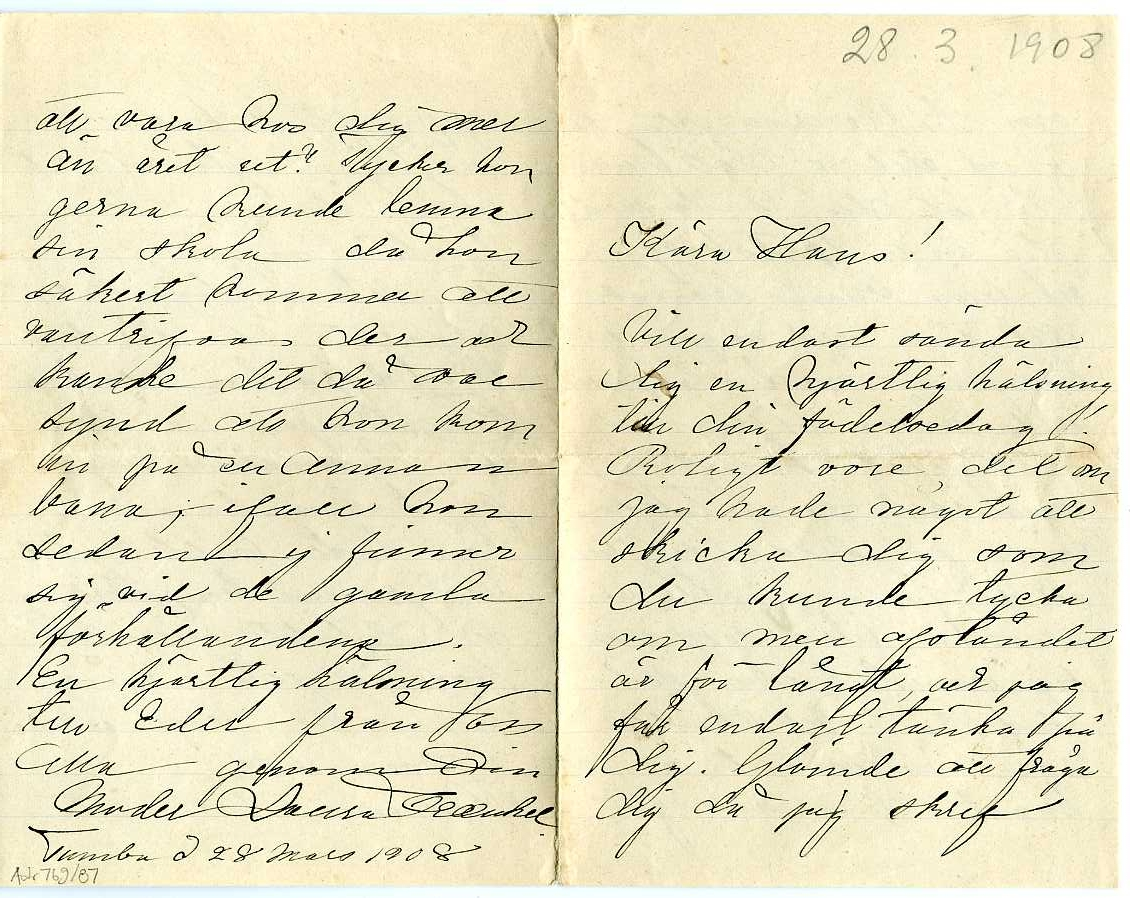 28. 3. 1908
Kära Hans!
Vill endast sända
dig en hjärtlig hälsning
till din födelsedag!
Roligt vore det om
jag hade något att
skicka dig som
du kunde tycka
om men afståndet
är för långt, och jag
får endast tänka på
dig. Glömde att fråga
dig då jag skref
att vara hos dig mer
än året ut? Tycker hon
gerna kunde lemna
sin skola då hon
säkert kommer att
vantrifvas der och
kanske det då vore
synd att hon kom
in på en annan
bana, ifall hon
sedan ej finner
sig vid de gamla
förhållandena.
En hjärtlig hälsning
till Eder från oss
alla genom Din
Moder Laura Fraenkel
Tumba d 28 Mars 1908